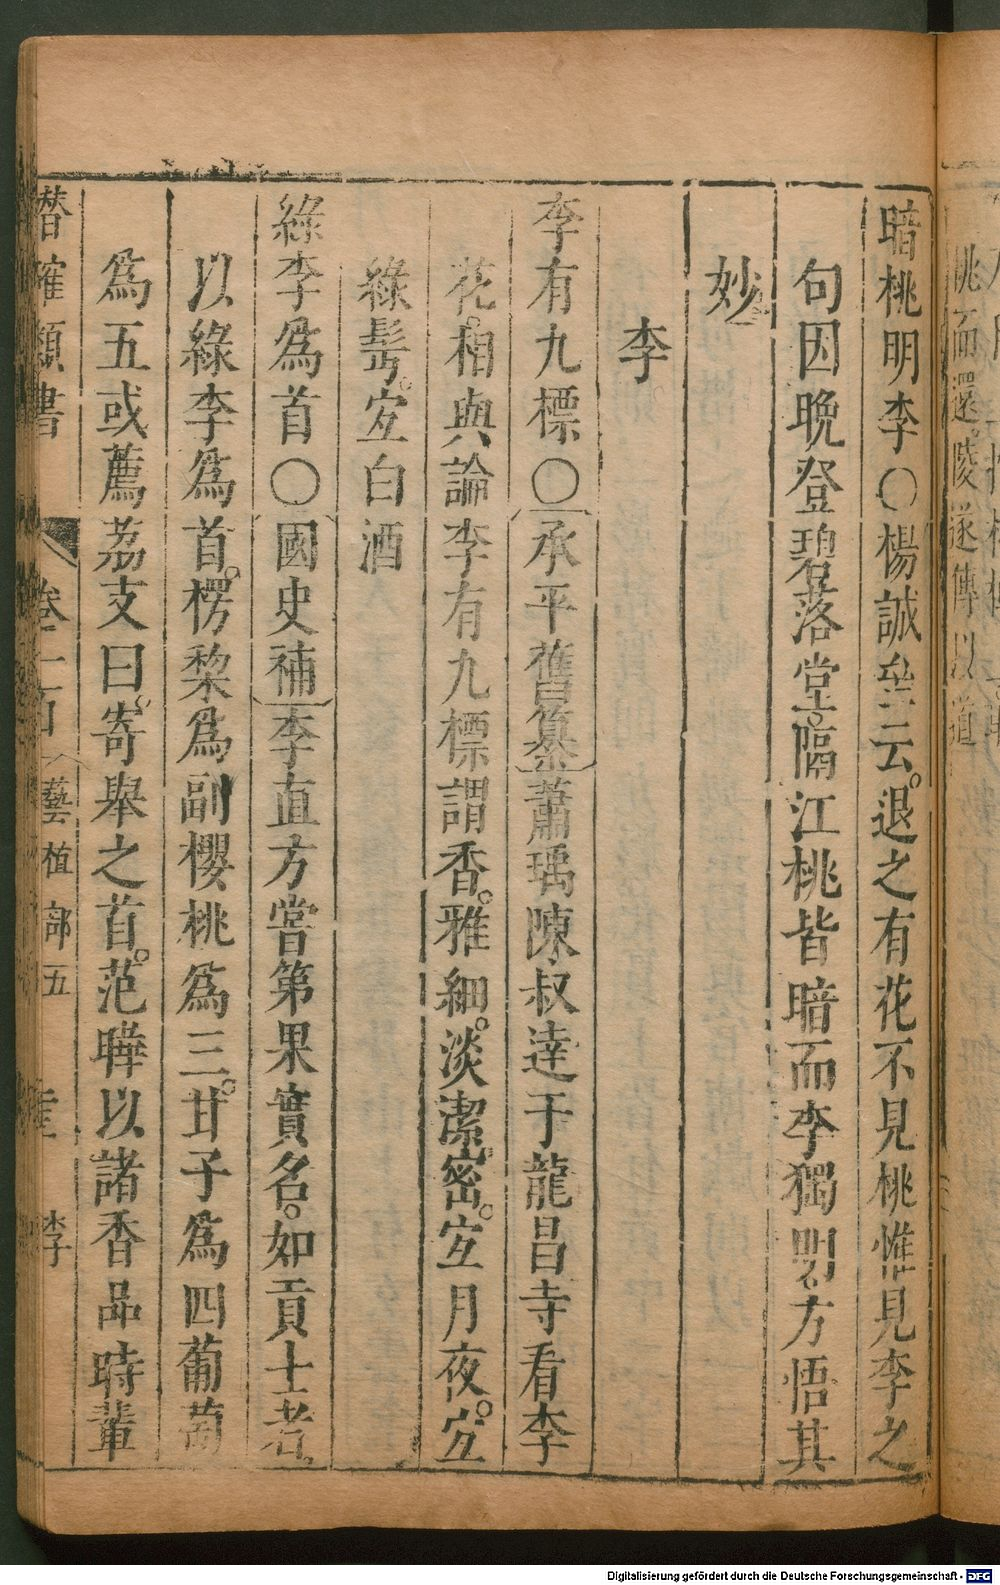 暗桃明李〇楊誠垒云退之有花不見桃惟見李之
句因晚登碧落堂隔江桃皆暗而李獨明方悟其
妙
李
李有九標〇承平舊纂蕭瑀陳叔達于龍昌寺看李
花相與論李有九標謂香。雅細。淡潔。密。宐月夜。宐
綠髩。宐白酒
綠李爲首〇國史補李直方嘗第果實名。如貢士者
以綠李爲首。楞棃爲副櫻桃爲三。甘子爲四葡萄
爲五或薦荔支曰。寄舉之首。范曄以諸香品時輩
潜確類書 藝植部五 李
桃而還。陵遂傳以道
Digitalisierung gefördert durch die Deutsche Forschungsgemeinschaft - DFG